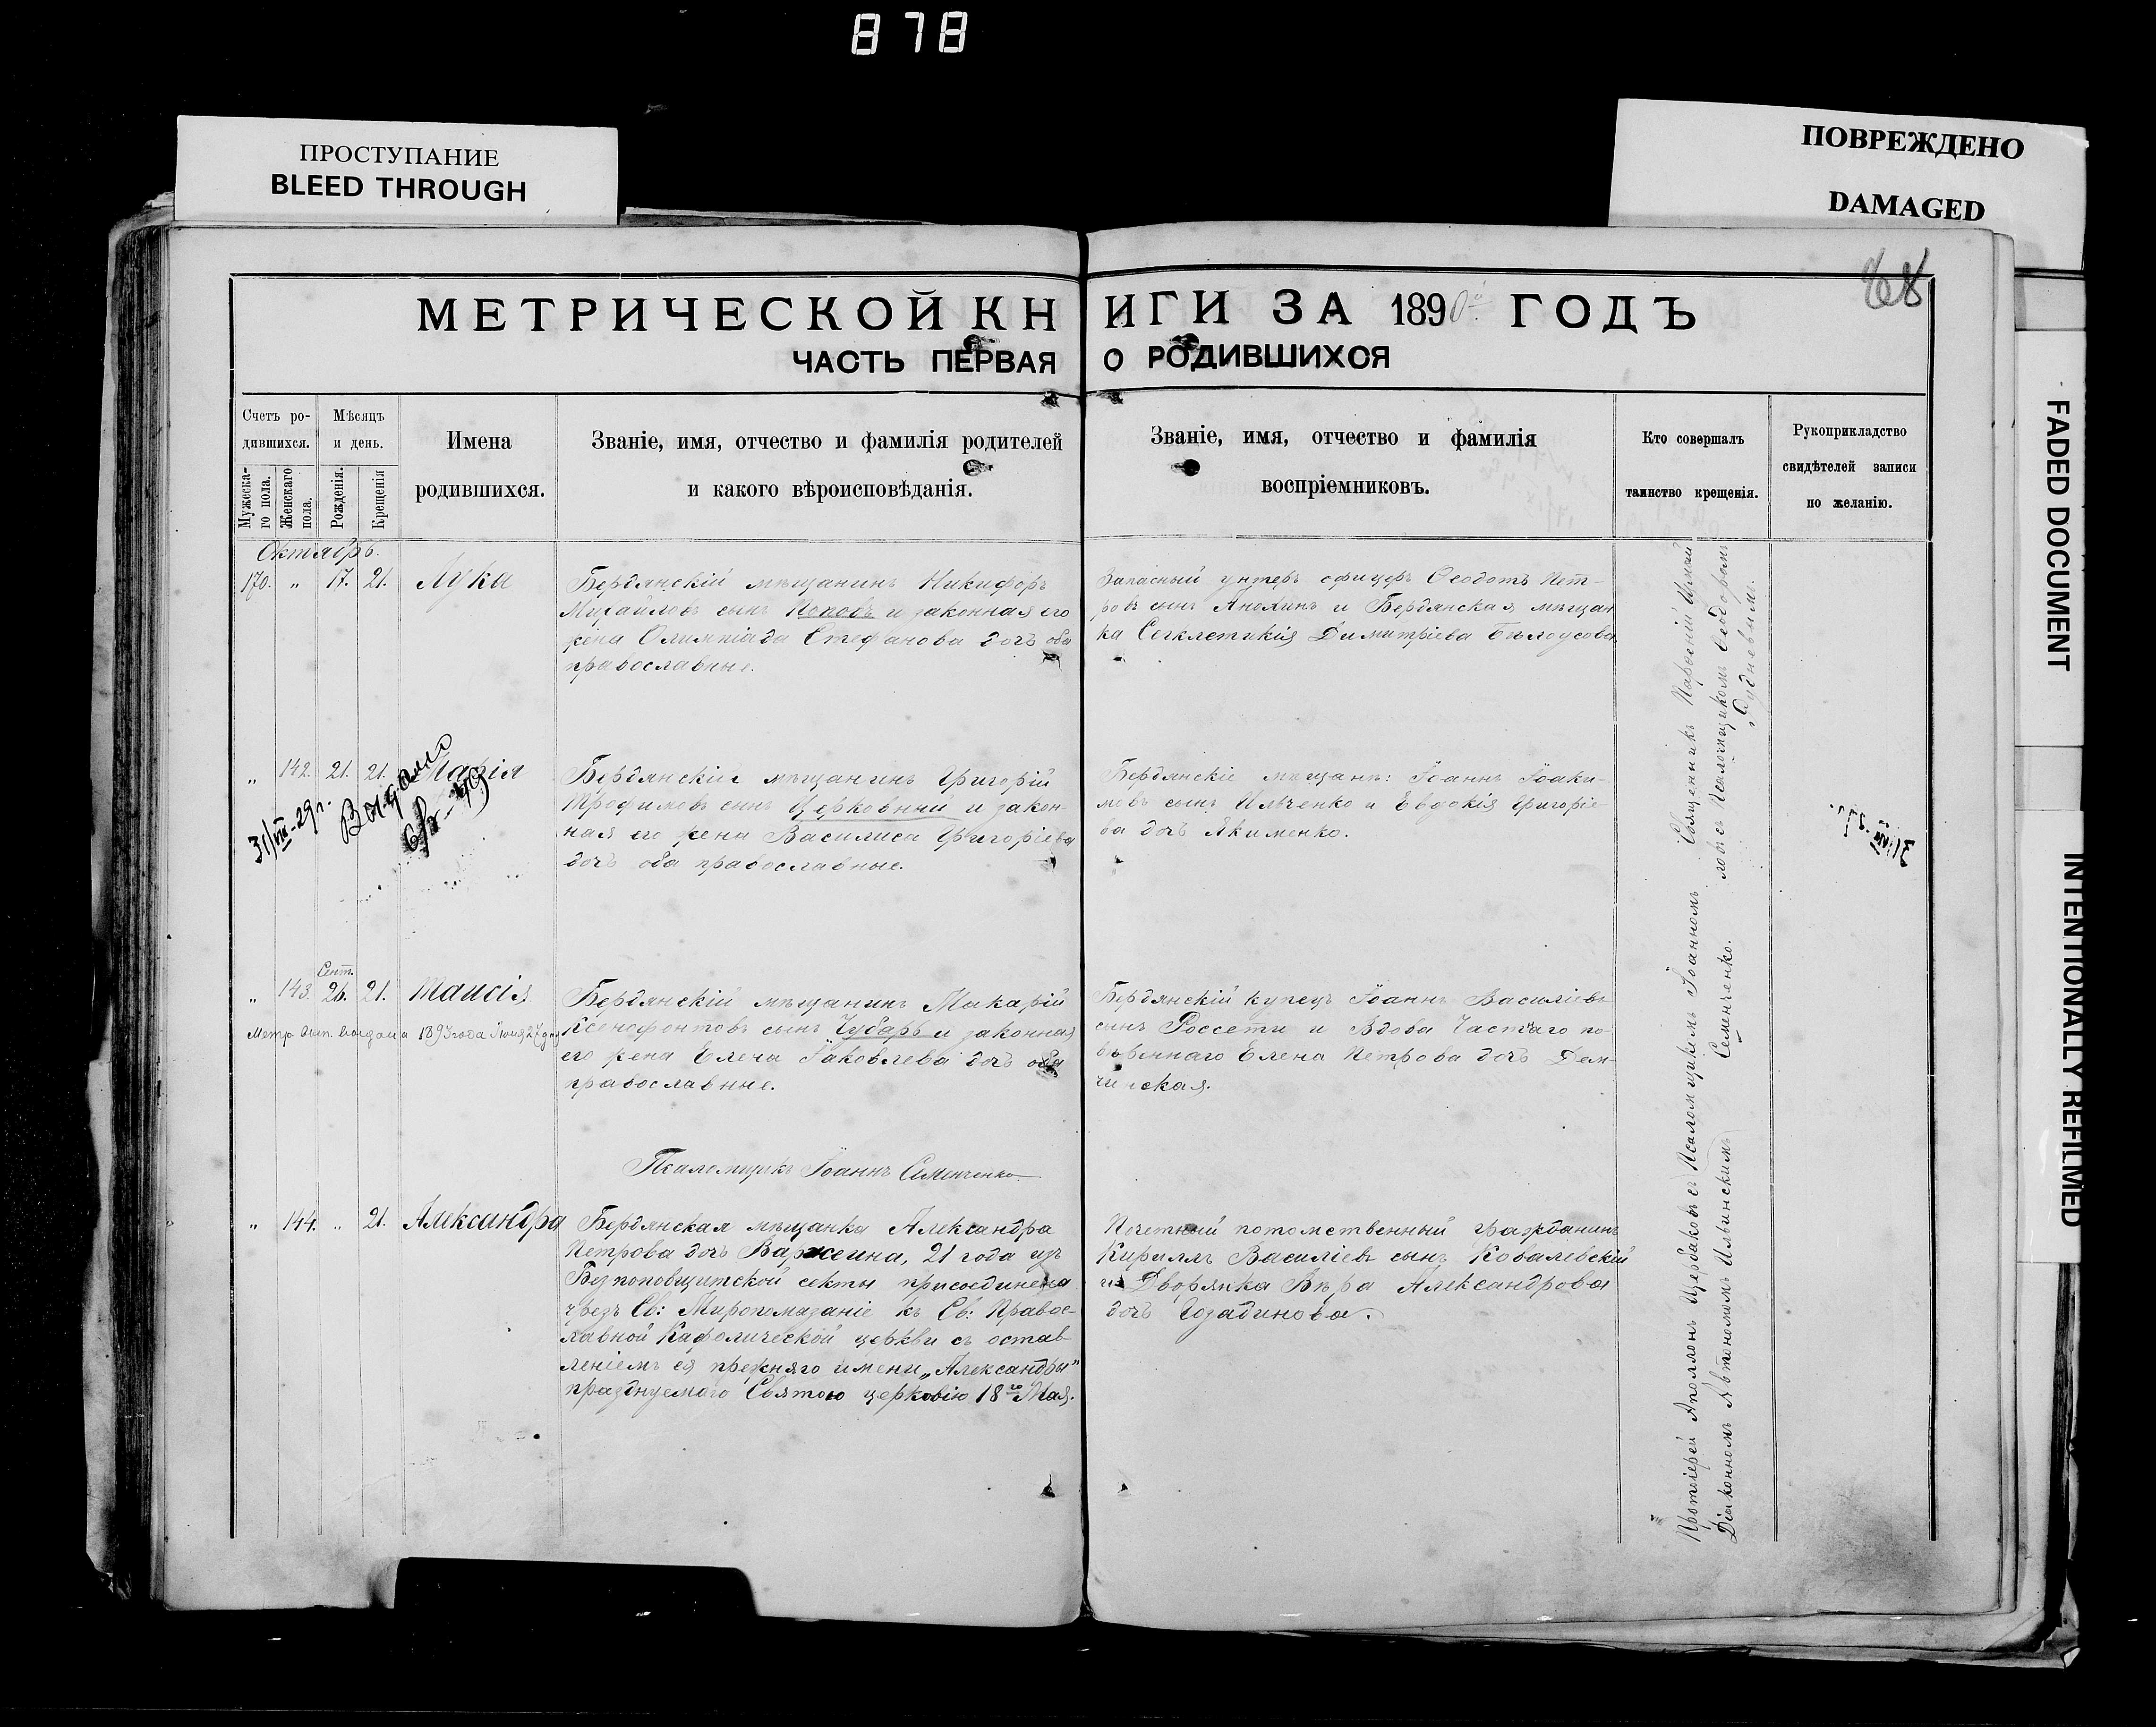 878
ПРОСТУПАНИЕ
BLEED THROUGH
ПОВРЕЖДЕНО
DAMAGED
FADED DOCUMENT
INTENTIONALLY REFILMED
68
МЕТРИЧЕСКОЙ КНИГИ ЗА 1890 ГОДЪ
ЧАСТЬ ПЕРВАЯ О РОДИВШИХСЯ
Счетъ ро-
дившихся.
Мужеска-
го пола.
Женскаго
пола.
Мѣсяцъ
и день.
Рожденія.
Крещенія
Имена
родившихся.
Званіе, имя, отчество и фамилія родителей
и какого вѣроисповѣданія.
Званіе, имя, отчество и фамилія
воспріемниковъ.
Кто совершалъ
таинство крещенія.
Рукоприкладство
свидѣтелей записи
по желанію.
Октябрь.
170. „ 17. 21. Лука
Бердянскій мѣщанинъ Никифоръ
Михайловъ сынъ Поповъ и законная его
жена Олимпіада Стефанова дочь оба
православные.
Запасный унтеръ офицеръ Ѳеодотъ Пет-
ровъ сынъ Анохинъ и Бердянская мѣщан
ка Сегклетикія Димитріева Бѣлоусова
„ 142. 21. 21. Марія
31/VIII-29г.
Бердянскій мѣщанинъ Григорій
Трофимовъ сынъ Церковный и закон-
ная его жена Василиса Григоріева
дочь оба православные.
Бердянскіе мѣщане: Іоаннъ Іоаки-
мовъ сынъ Ильченко и Евдокія Григоріе-
ва дочь Якименко.
Сент.
„ 143. 26. 21. Таисія
Метр. вып. выдана 1893 года Іюня 27 дня
Бердянскій мѣщанинъ Макарій
Ксенофонтовъ сынъ Чубарь и законная
его жена Елена Іаковлева дочь оба
православные.
Бердянскій купецъ Іоаннъ Василіевъ
сынъ Россети и Вдова Частнаго по-
вѣреннаго Елена Петрова дочь Дем-
чинская.
Псаломщикъ Іоаннъ Семенченко
„ 144. „ 21. Александра
Бердянская мѣщанка Александра
Петрова дочь 21 года изъ
Безпоповщитской секты присоединена
чрезъ Св: Миропомазаніе къ Св: Правос-
лавной Каѳолической церкви съ остав-
леніемъ ея прежняго имени „Александры"
празднуемаго Святою церковію 18го Мая.
Почетный потомственный гражданинъ
Кириллъ Василіевъ сынъ Ковалевскій
и Дворянка Вѣра Александрова
дочь Созадинова.
Протоіерей Аполлонъ Щербаковъ съ Псаломщикомъ Іоанномъ
Діакономъ Автономомъ Ильинскимъ Семенченко.
Священникъ Парѳеній
Псаломщикомъ Ѳеодоромъ